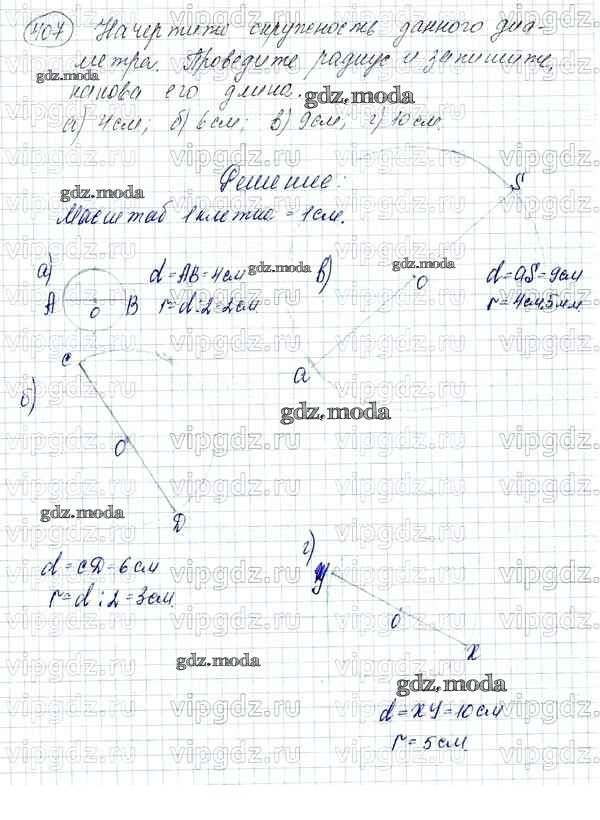 407 Начертите окружность данного диа-
метра. Проведите радиус и запишите,
какова его длина.
а) 4 см; б) 6 см; в) 9 см; г) 10 см.
Решение:
Масштаб 1 клетка = 1 см.
а)
A O B
d = AB = 4 см
r = d : 2 = 2 см.
в)
S
O
a
d = aS = 9 см
r = 4 см 5 мм
б)
C
O
D
d = CD = 6 см
r = d : 2 = 3 см.
г)
У
O
X
d = XY = 10 см
r = 5 см.
gdz.moda
vipgdz.ru